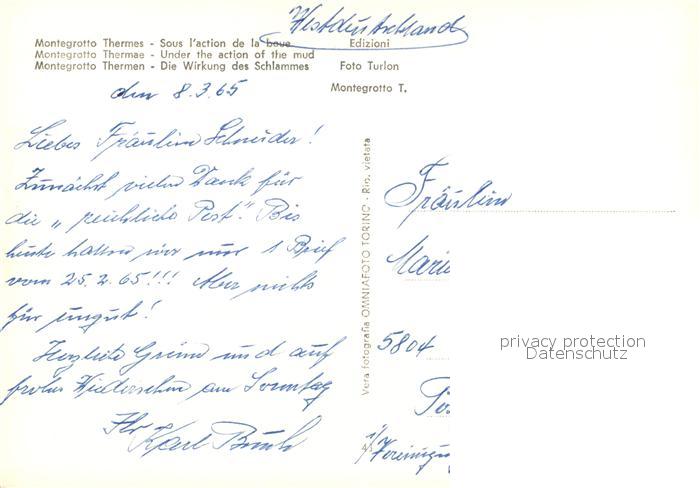 Westdeutschland
Montegrotto Thermes - Sous l'action de la boue
Montegrotto Thermae - Under the action of the mud
Montegrotto Thermen - Die Wirkung des Schlammes
Edizioni
Foto Turlon
Montegrotto T.
den 8.3.65
Liebes Fräulein Schneider!
Zunächst vielen Dank für
die „reichliche Post". Bis
heute hatten wir nur 1 Brief
vom 25.2.65!!! Aber nichts
für ungut!
Herzliche Grüsse und auf
frohes Wiedersehn am Sonntag
Ihr
Karl
Vera fotografia OMNIAFOTO TORINO - Rip. vietata
Fräulein
Marie
5804
privacy protection
Datenschutz